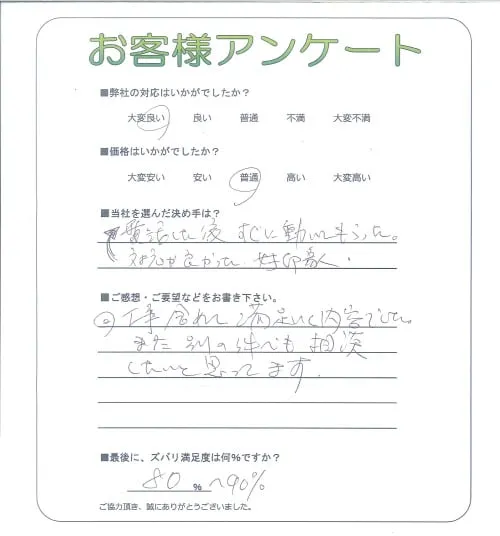 お客様アンケート
■弊社の対応はいかがでしたか？
大変良い 良い 普通 不満 大変不満
■価格はいかがでしたか？
大変安い 安い 普通 高い 大変高い
■当社を選んだ決め手は？
電話した後 すぐに動いてもらった。
対応が良かった 好印象
■ご感想・ご要望などをお書き下さい。
満足いく内容でした。
また 別の件でも 相談
したいと思ってます.
■最後に、ズバリ満足度は何%ですか？
80 % 〜90%
ご協力頂き、誠にありがとうございました。